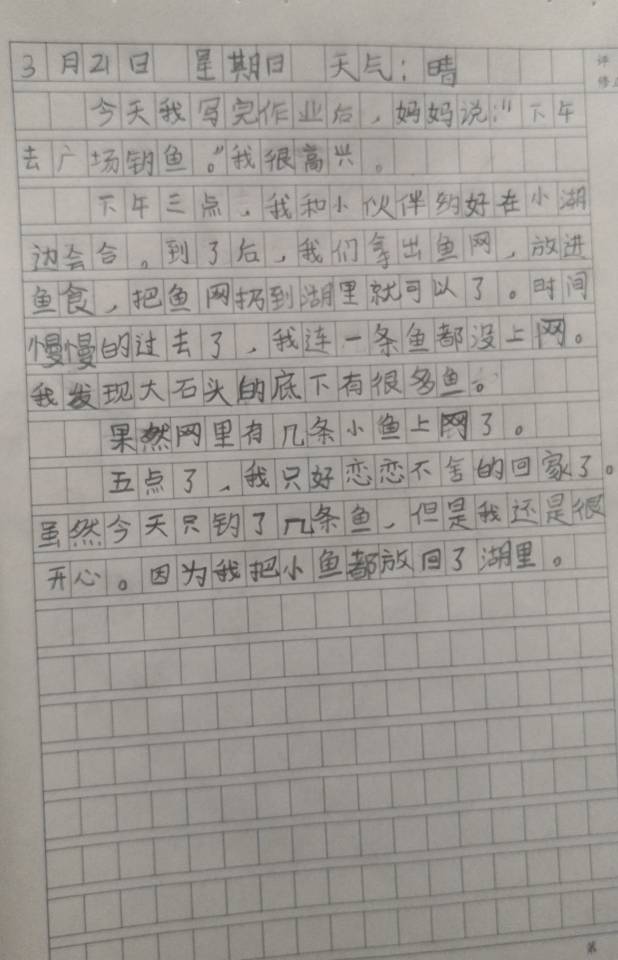 3月21日 星期日 天气：晴
今天我写完作业后，妈妈说："下午
去广场钓鱼。"我很高兴。
下午三点，我和小伙伴约好在小湖
边会合。到了后，我们拿出鱼网，放进
鱼食，把鱼网扔到湖里就可以了。时间
慢慢的过去了，我连一条鱼都没上网。
我发现大石头的底下有很多鱼。
果然网里有几条小鱼上网了。
五点了，我只好恋恋不舍的回家了。
虽然今天只钓了几条鱼，但是我还是很
开心。因为我把小鱼都放回了湖里。
评
修
第